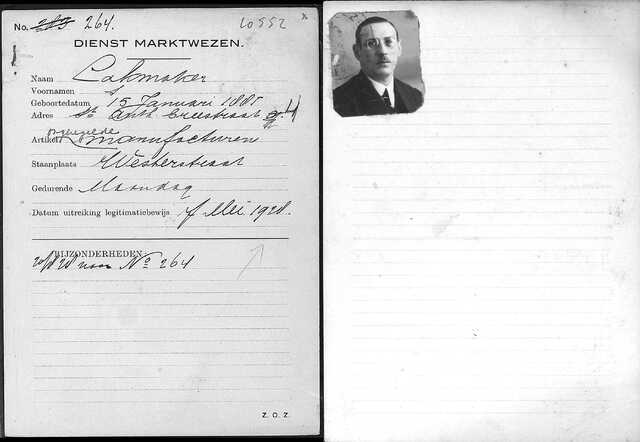 No. 283 264. 10552
DIENST MARKTWEZEN.
Naam Lakmaker
Voornamen S
Geboortedatum 15 Januari 1885
Adres St. Anth. breestraat
Artikel ongeregelde manufacturen
Staanplaats Westerstraat
Gedurende Maandag
Datum uitreiking legitimatiebewijs Mei 1928.
BIJZONDERHEDEN:
naar No 264
Z. O. Z.